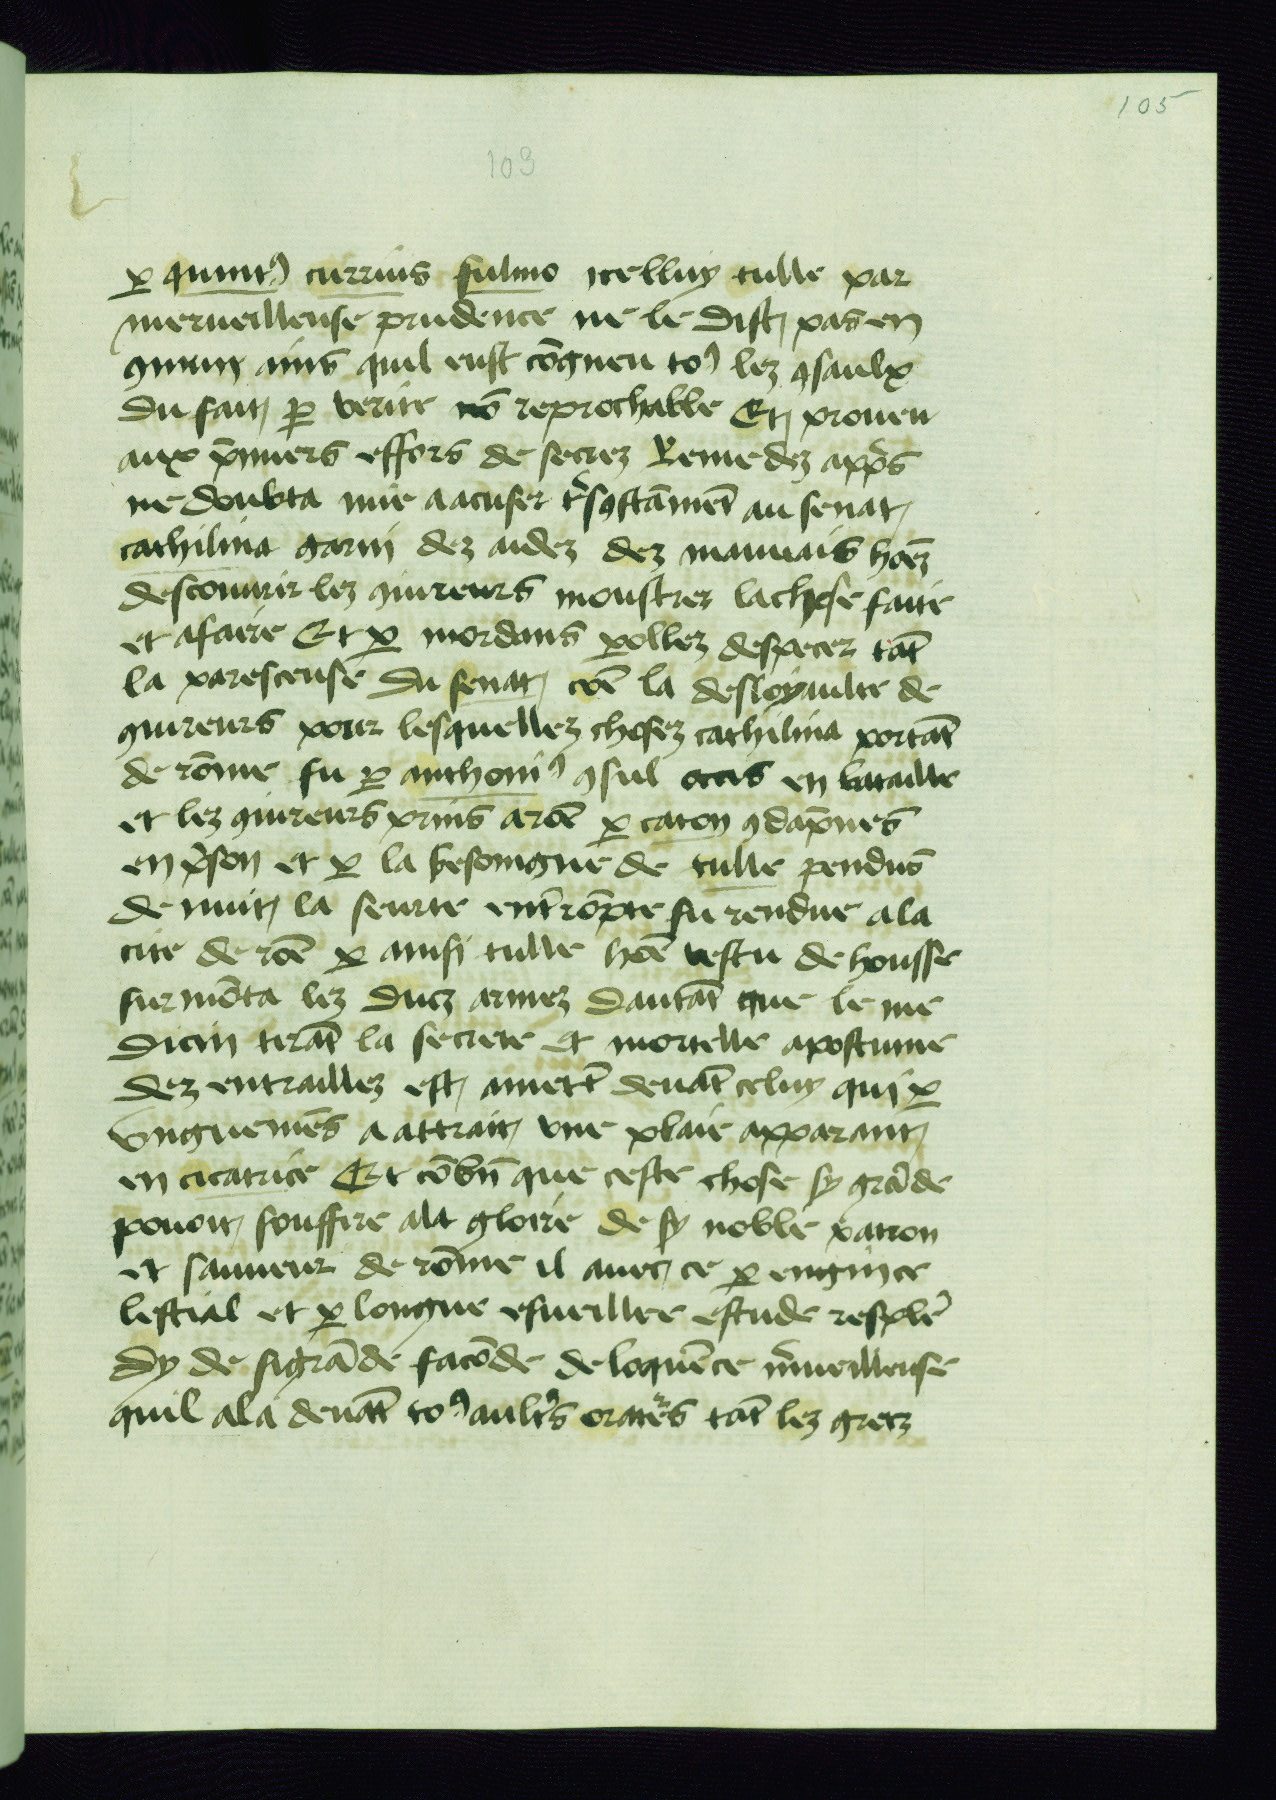 105
103
ꝑ quintꝰ currius fulmo icelluy tulle par
merueilleuse prudence ne le dist pas en
ains quil eust cōgneu toꝯ lez ꝯsaulx
du fait ꝑ verite nō reprochable Et proueu
aux p̄miers effors de secrez Remedez app̄s
ne doubta mie a acuser ꝯstāmēt au senat
cathilina garni dez aidez dez mauuais hōēz
descouurir lez ꝯiureurs monstrer la chose faite
et a faire Et ꝑ mordans ꝑollez despecer tāt
la paresceuse du senat cōē la desloyaulte de
ꝯiureurs pour lesquellez chosez cathilina portāt
de rōme fu ꝑ anthoniꝯ ꝯsul occis en bataille
et lez ꝯiureurs prins a rōē ꝑ caton ꝯdāpnes
en p̄son et ꝑ la besoingne de tulle pendus
de nuit la seurte ent̄rōpte fu rendue a la
cite de rōē ꝑ ainsi tulle hōē vestu de housse
surmōta lez ducz armez dautāt que le me
dicin tirāt la secrete et mortelle apostume
dez entraillez est deuāt celuy qui ꝑ
vnguemēs a attrait vne plaie apparant
en cicatrice Et cōbn̄ que ceste chose sy grāde
pouoit souffire a la gloire de sy noble patron
et sauueur de rōme il auec ce ꝑ engin ce
lestial et ꝑ longue esueillee estude resplē
dy de si grāde facōde deloquēce m̄ueilleuse
quil ala deuāt toꝯ ault̄s orateʳs tāt lez grecz